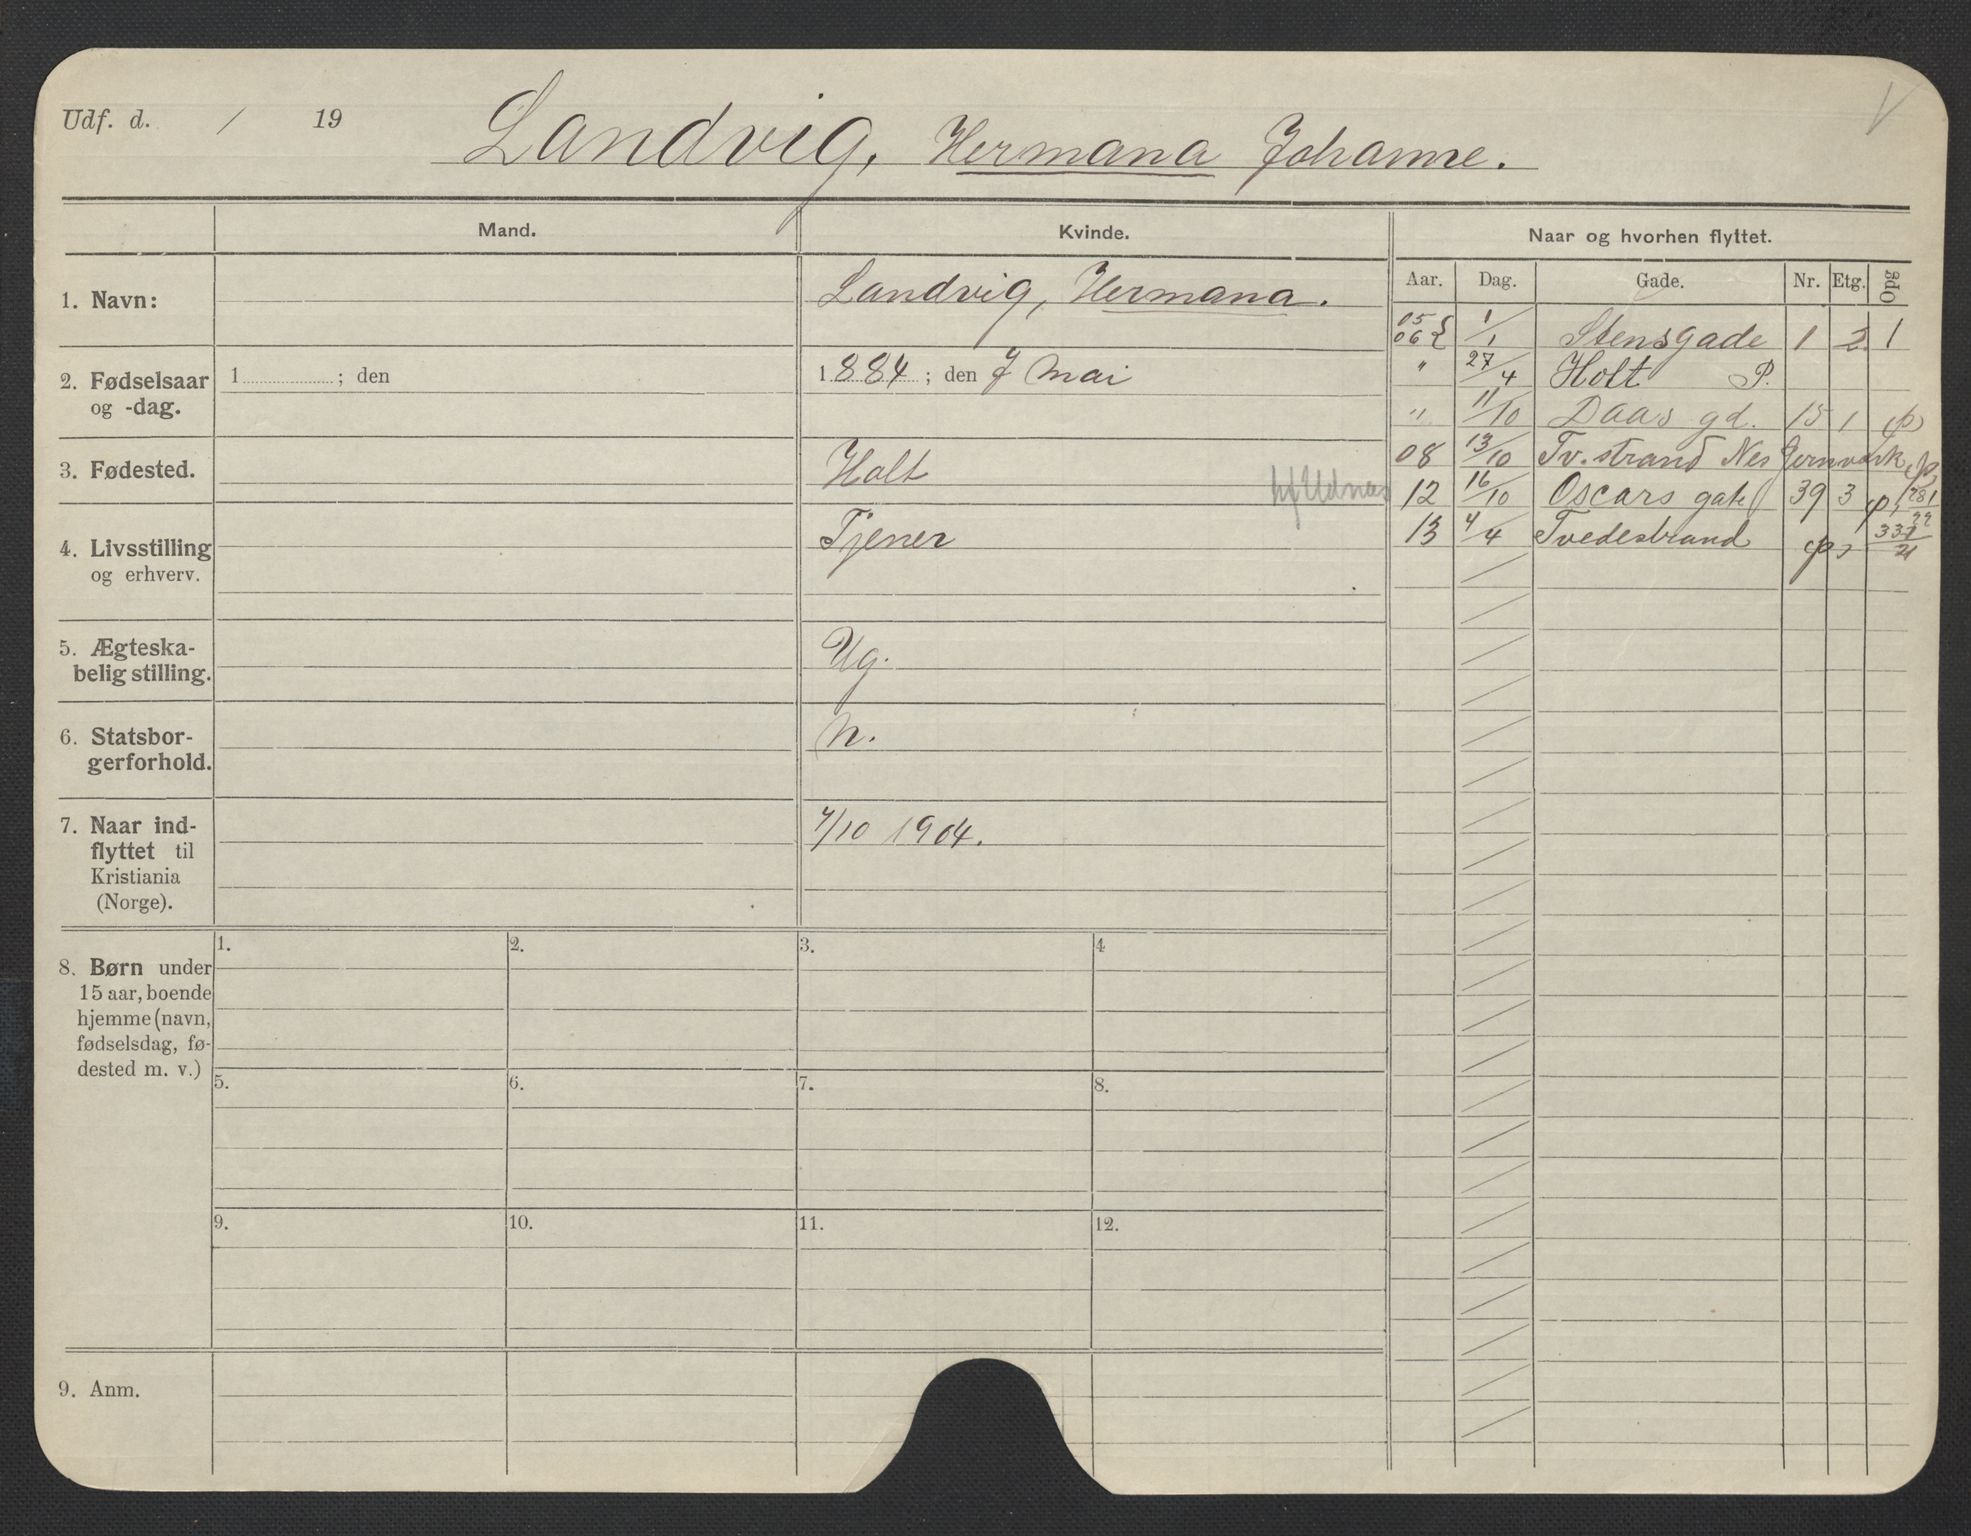 Udf. d. / 19 Landvig, Hermana Johanne.
Mand. Kvinde. Naar og hvorhen flyttet.
Aar. Dag. Gade. Nr. Etg. Opg
1. Navn: Landvig, Hermana.
05 06 { 1/1 Stensgade 1 2. 1
2. Fødselsaar og -dag. 1 ; den 1884 ; den 7 Mai
" 27/4 Holt P.
" 11/10 Daas gd. 15 1
08 13/10 Tv. strand Nes Jernverk
3. Fødested. Holt
12 16/10 Oscars gate 39 3
4. Livsstilling og erhverv. Tjener
13 4/4 Tvedestrand
5. Ægteska-
belig stilling. Ug.
6. Statsbor-
gerforhold. N.
7. Naar ind-
flyttet til
Kristiania
(Norge). 4/10 1904.
8. Børn under
15 aar, boende
hjemme (navn,
fødselsdag, fø-
dested m. v.)
1. 2. 3. 4
5. 6. 7. 8.
9. 10. 11. 12.
9. Anm.